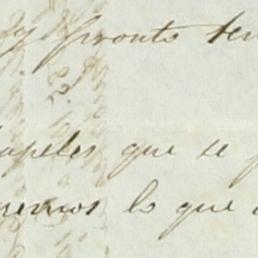 y pronto ten
papeles que se p
remos lo que